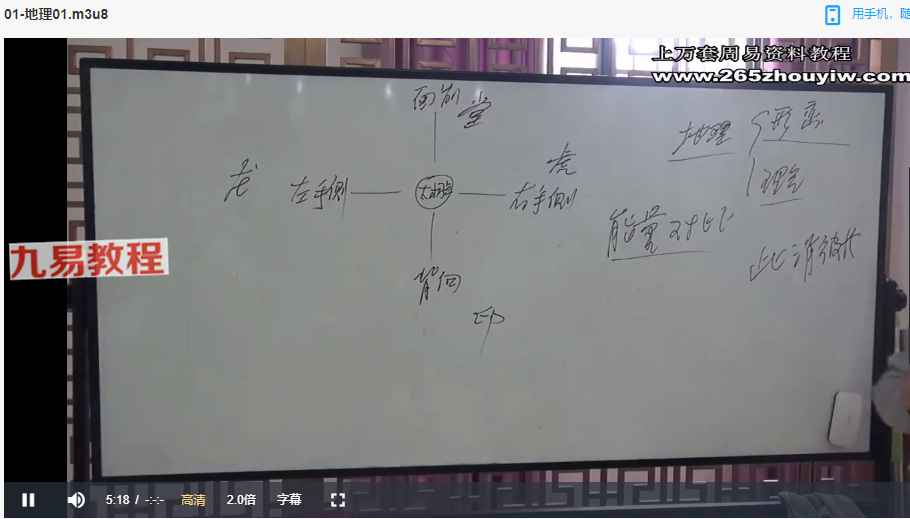 01-地理01.m3u8
用手机，随
上万套周易资料教程
www.265zhouyiw.com
面前
堂
地理
形峦
理气
龙
左手侧
太极
右手侧
虎
能量对比
此消彼长
背向
印
九易教程
5:18 / -:-:-
高清
2.0倍
字幕